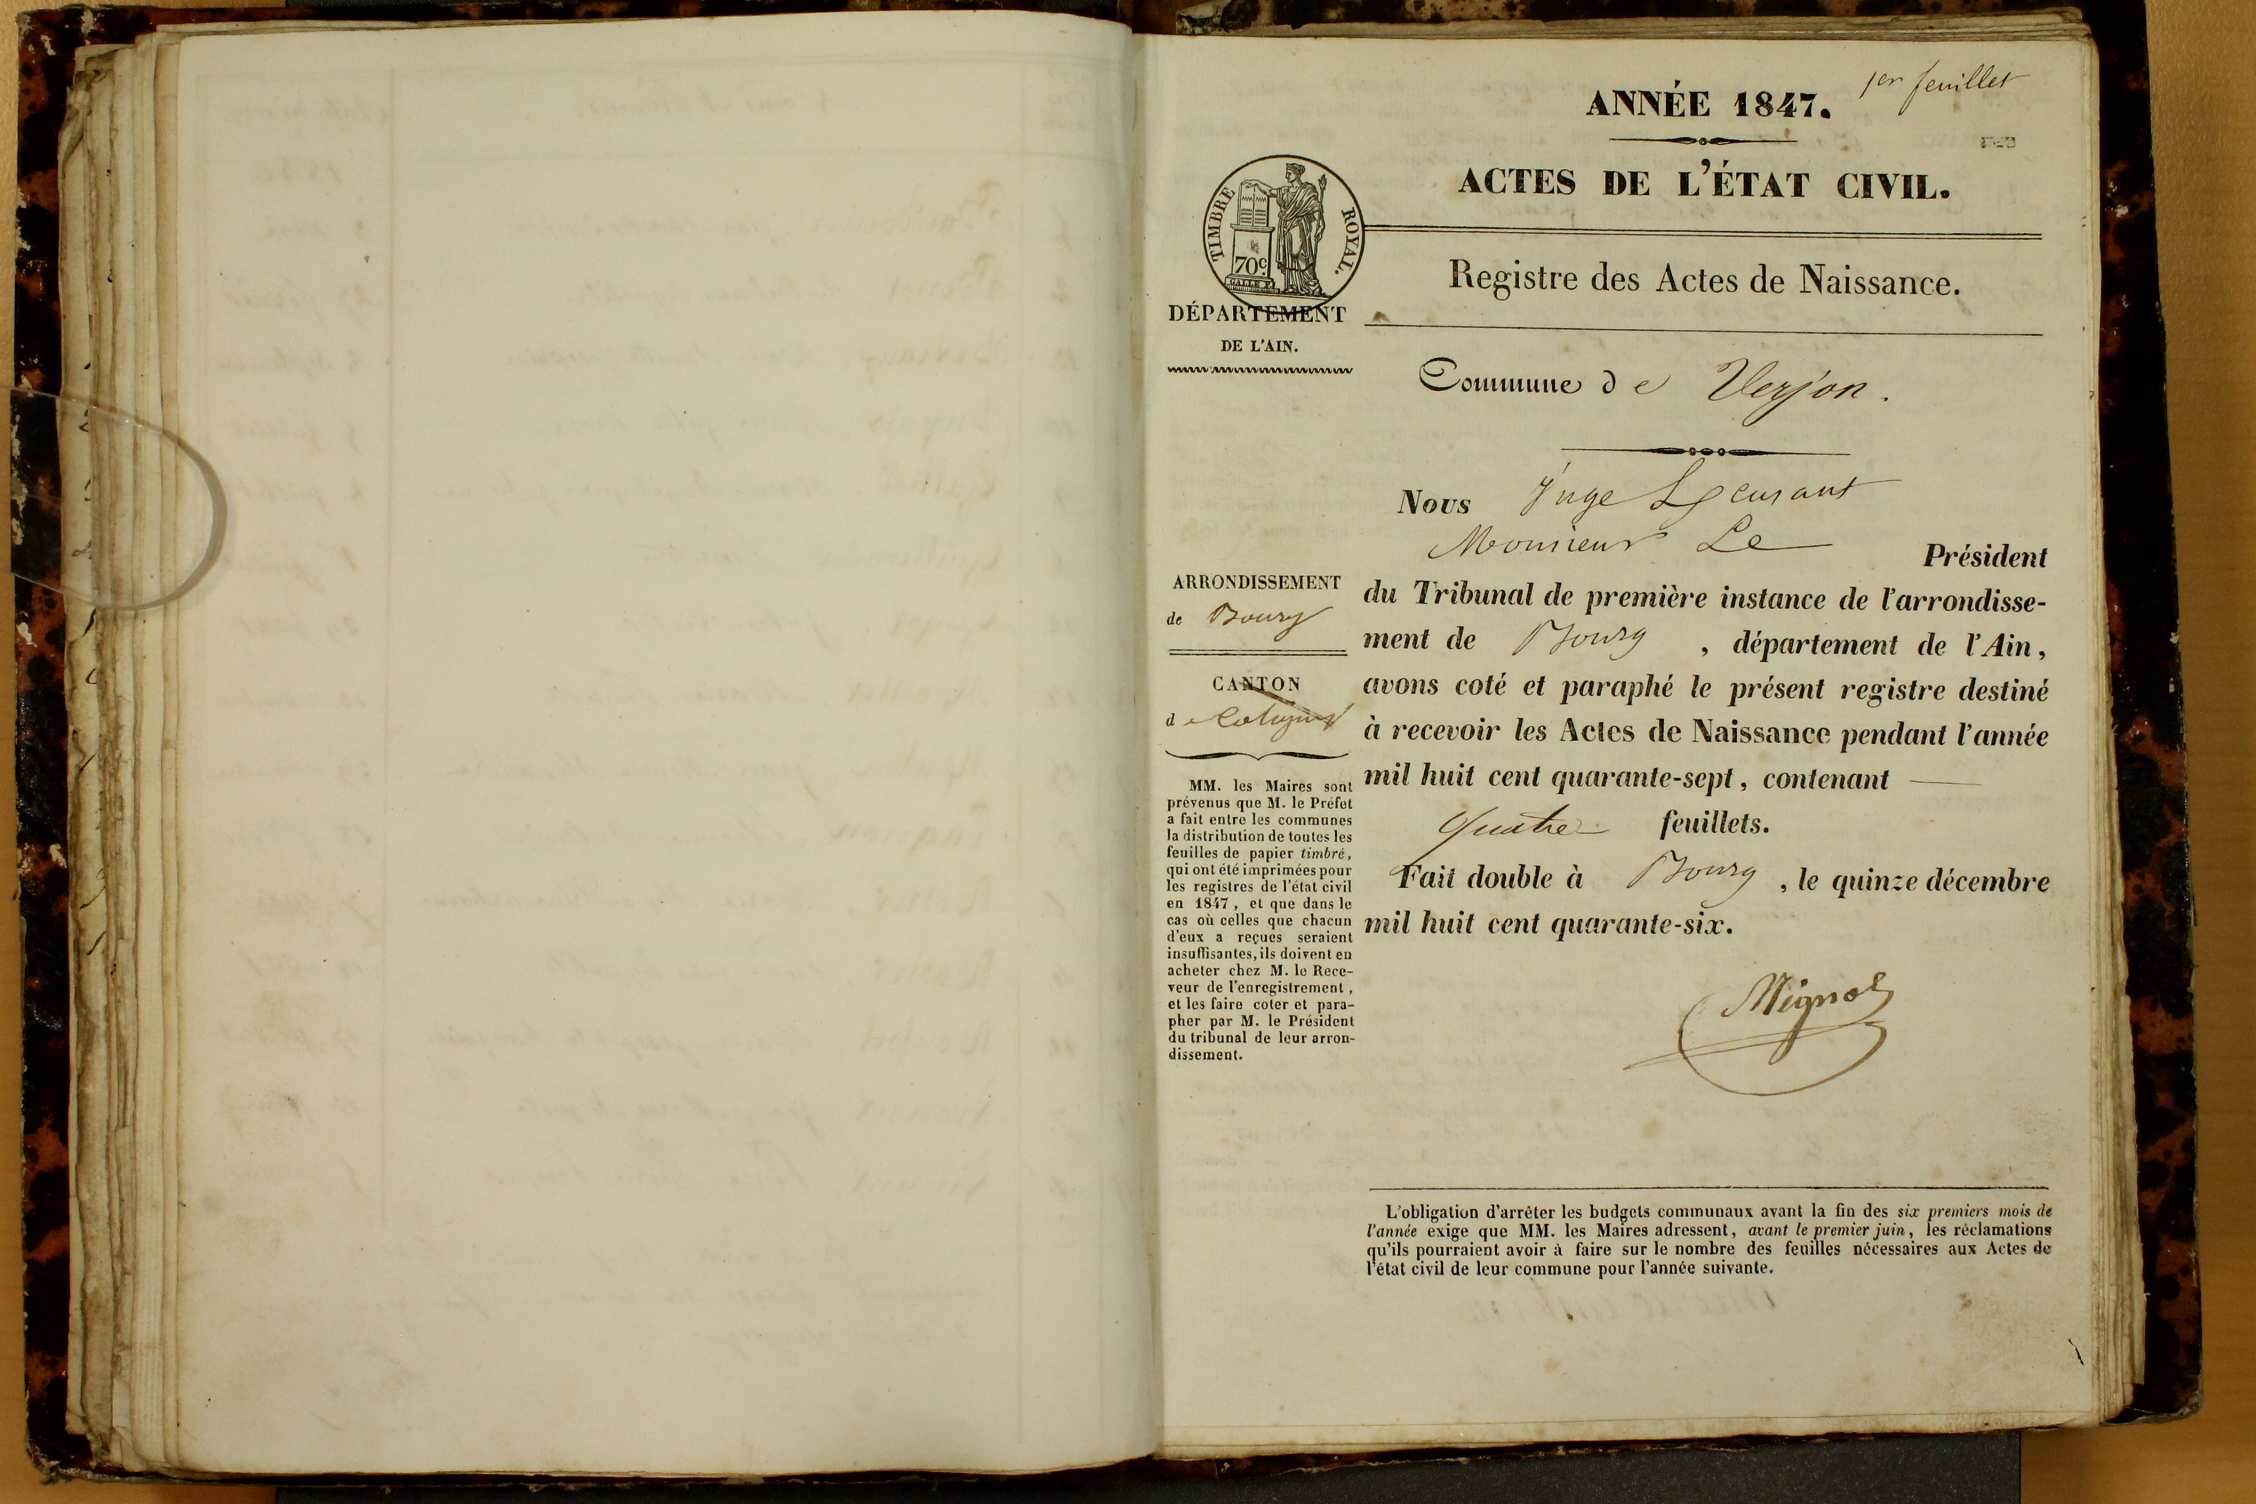 1er feuillet
ANNÉE 1847.
ACTES DE L'ÉTAT CIVIL.
TIMBRE ROYAL.
70c
Registre des Actes de Naissance.
DÉPARTEMENT
DE L'AIN.
Commune de Verjon.
Nous Juge
Monsieur Le Président
du Tribunal de première instance de l'arrondisse-
ment de Bourg, département de l'Ain,
avons coté et paraphé le présent registre destiné
à recevoir les Actes de Naissance pendant l'année
mil huit cent quarante-sept, contenant
quatre feuillets.
Fait double à Bourg, le quinze décembre
mil huit cent quarante-six.
Mignot
ARRONDISSEMENT
de Bourg
CANTON
de Coligny
MM. les Maires sont
prévenus que M. le Préfet
a fait entre les communes
la distribution de toutes les
feuilles de papier timbré,
qui ont été imprimées pour
les registres de l'état civil
en 1847, et que dans le
cas où celles que chacun
d'eux a reçues seraient
insuffisantes, ils doivent en
acheter chez M. le Rece-
veur de l'enregistrement,
et les faire coter et para-
pher par M. le Président
du tribunal de leur arron-
dissement.
L'obligation d'arrêter les budgets communaux avant la fin des six premiers mois de
l'année exige que MM. les Maires adressent, avant le premier juin, les réclamations
qu'ils pourraient avoir à faire sur le nombre des feuilles nécessaires aux Actes de
l'état civil de leur commune pour l'année suivante.